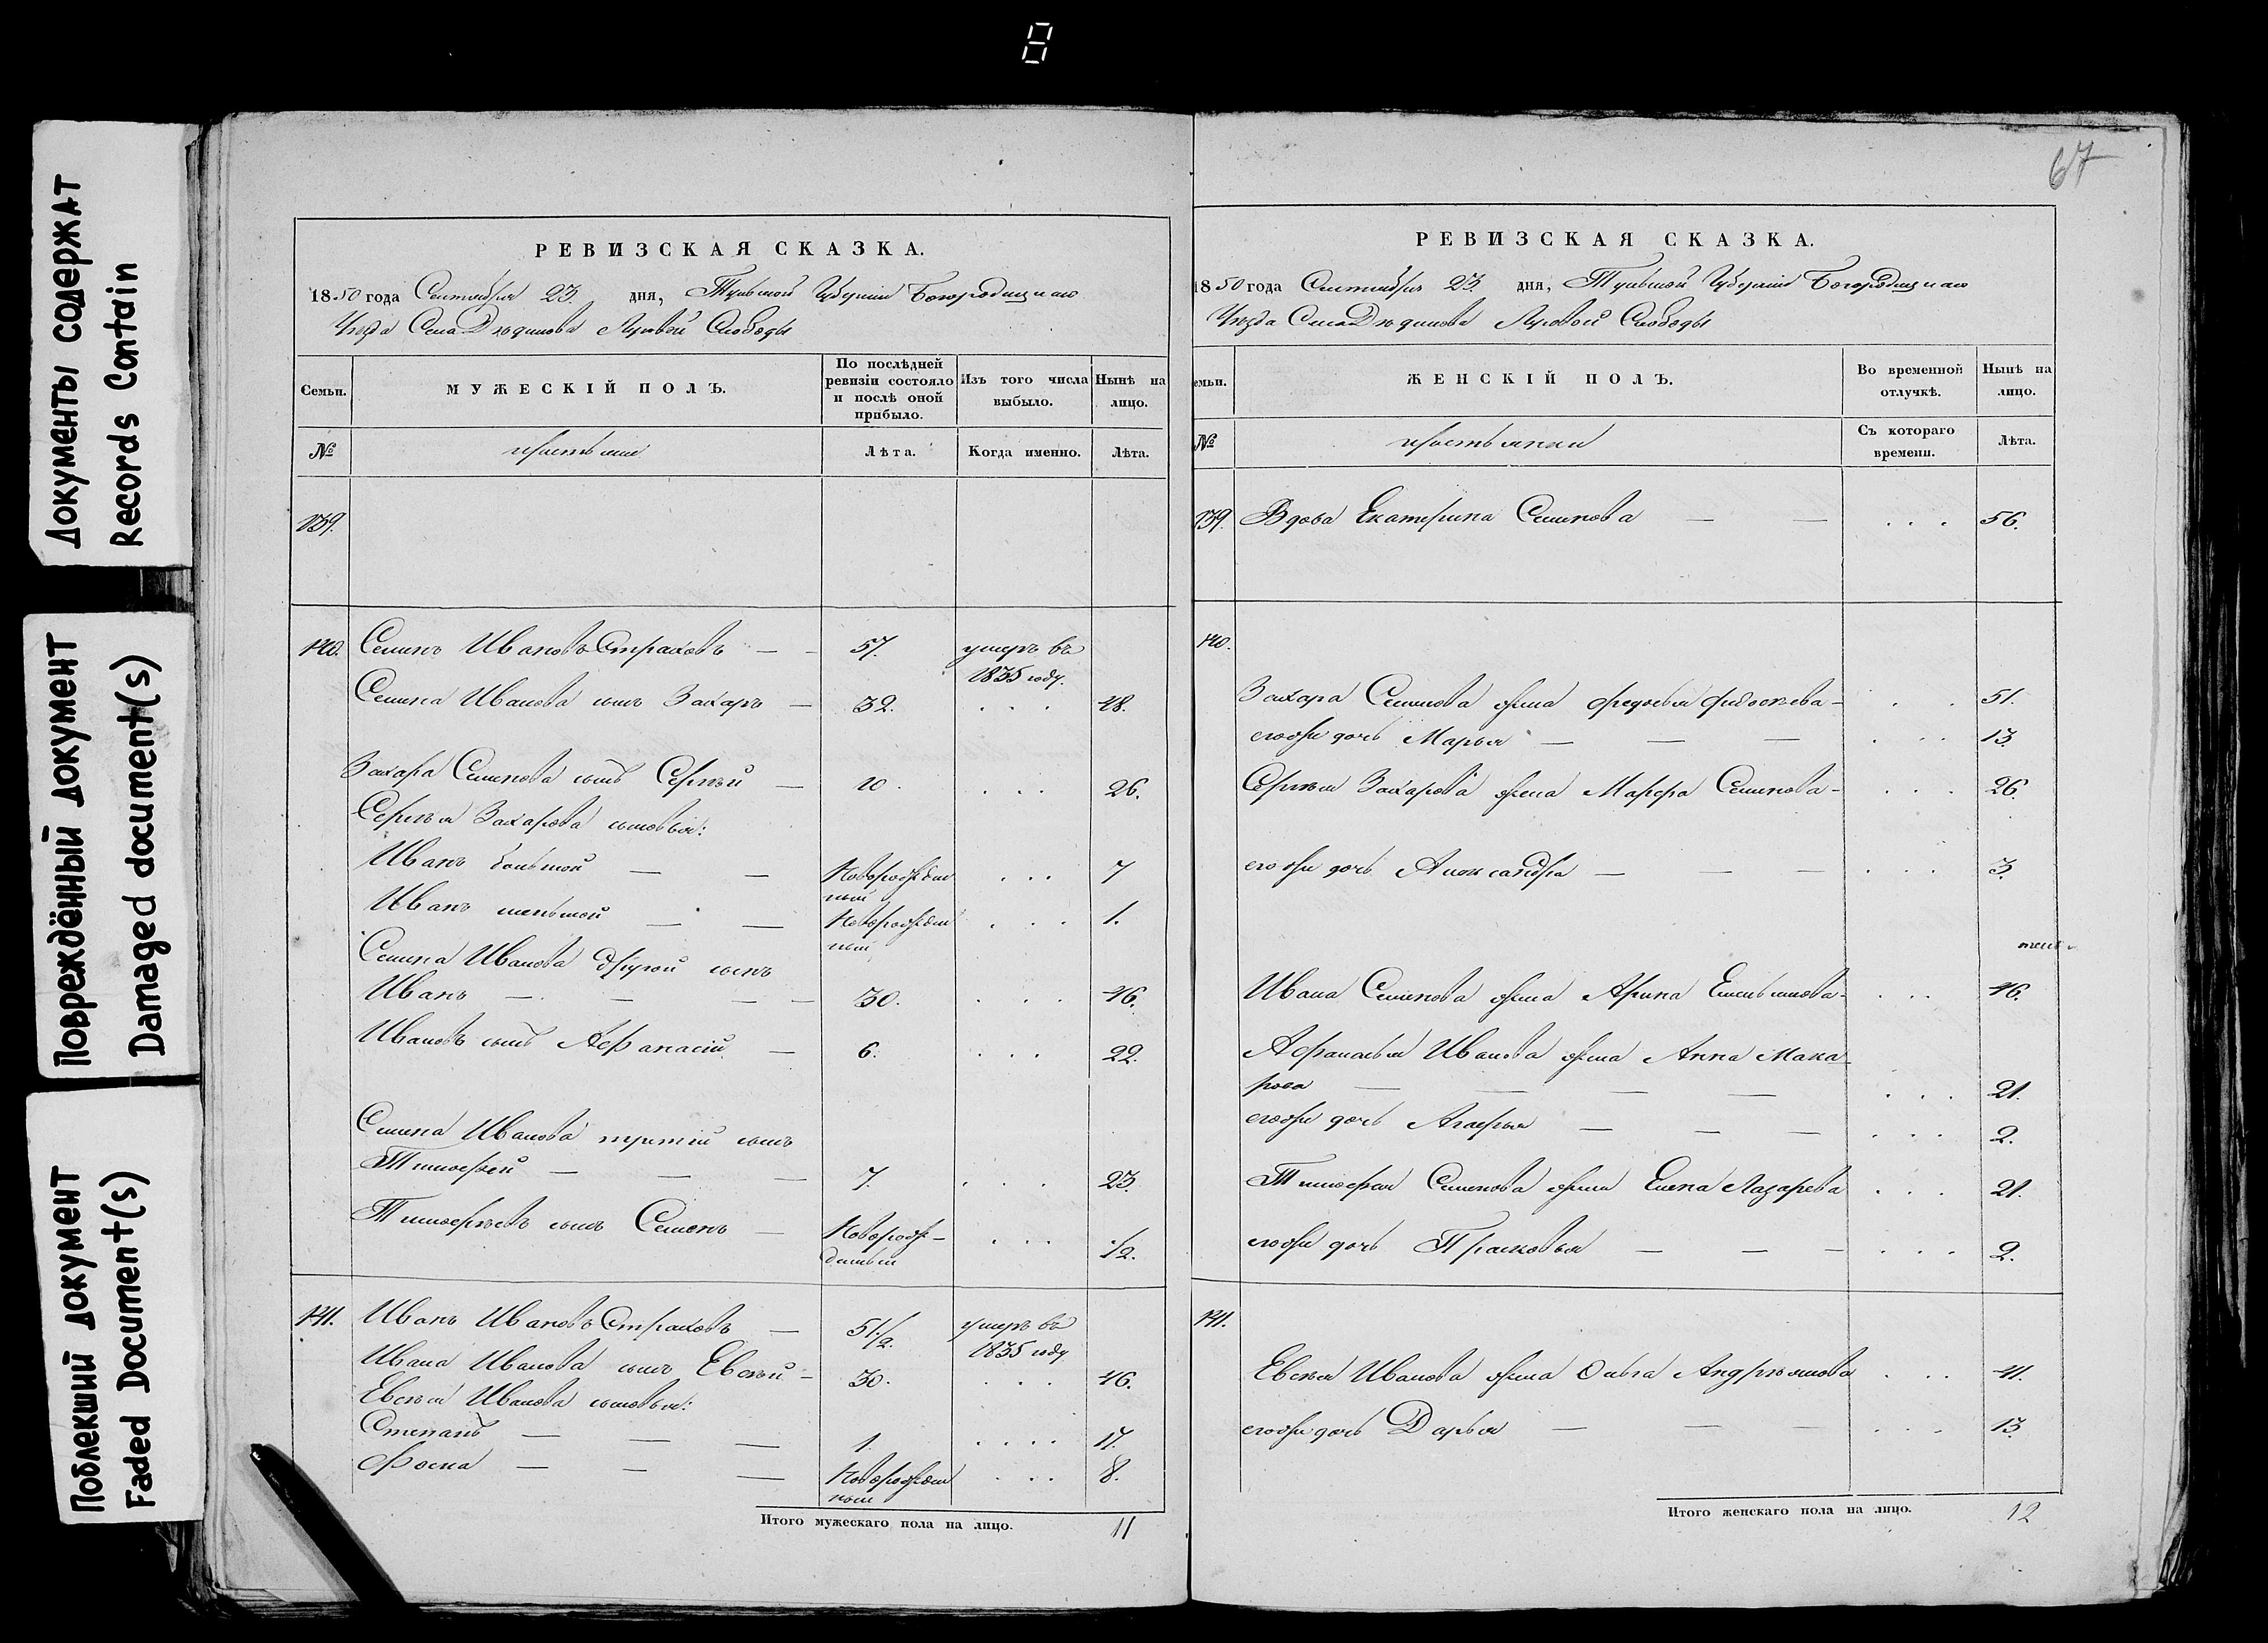 8
Документы содержат
Records Contain
Повреждённый документ
Damaged document(s)
Поблекший документ
Faded Document(s)
РЕВИЗСКАЯ СКАЗКА.
1850 года Сентября 23. дня, Тульской Губернiи Богородицкаго
Уѣзда Села Дѣдилова Луговой Слободы
Семьи.
МУЖЕСКІЙ ПОЛЪ.
По послѣдней ревизіи состояло и послѣ оной прибыло.
Изъ того числа выбыло.
Нынѣ на лицо.
№
крестьяне
Лѣта.
Когда именно.
Лѣта.
139.
140. Семенъ Ивановъ Страховъ — 57. умеръ въ
1835 году.
Семена Иванова сынъ Захаръ — 32. . . . 48.
Захара Семенова сынъ Сергѣй — 10. . . . 26.
Сергѣя Захарова сыновья:
Иванъ большой — — Новорожден . . . 7
ный
Иванъ меньшой — — Новорожден . . . 1.
ный
Семена Иванова другой сынъ
Иванъ — — — — 30. . . . 46.
Ивановъ сынъ Афанасій — 6. . . . 22.
Семена Иванова третій сынъ
Тимофей — — — 7. . . . 23.
Тимофеевъ сынъ Семенъ — Новорож- . . . 1/2.
денный
141. Иванъ Ивановъ Страховъ — 51 1/2. умеръ въ
1835 году
Ивана Иванова сынъ Евсѣй - 30. . . . 46.
Евсѣя Иванова сыновья:
Степанъ — — — 1. . . . . 17.
Фома — — — Новорожден . . . 8.
ный
Итого мужескаго пола на лицо. 11
67
РЕВИЗСКАЯ СКАЗКА.
1850 года Сентября 23. дня, Тульской Губернiи Богородицкаго
Уѣзда Села Дѣдилова Луговой Слободы
емьи.
ЖЕНСКІЙ ПОЛЪ.
Во временной отлучкѣ.
Нынѣ на лицо.
№
крестьянки
Съ котораго времени.
Лѣта.
139. Вдова Екатерина Семенова — — . . . 56.
140.
Захара Семенова жена Федосья - . . 51.
егоже дочь Марья — — — . . . 13.
Сергѣя Захарова жена Марфа Семенова - . . . 26.
егоже дочь Александра — — — . . . 3.
Ивана Семенова жена Арина Емельянова - . . . 46.
Афанасья Иванова жена Анна Мака-
рова — — — — . . . 21.
егоже дочь Агафья — — — . . . 2.
Тимофея Семенова жена Елена Лазарева . . . 21.
егоже дочь Прасковья — — — . . . 2.
141.
Евсѣя Иванова жена Ольга Андреянова . . . 41.
егоже дочь Дарья — — — . . . 13.
Итого женскаго пола на лицо. 12